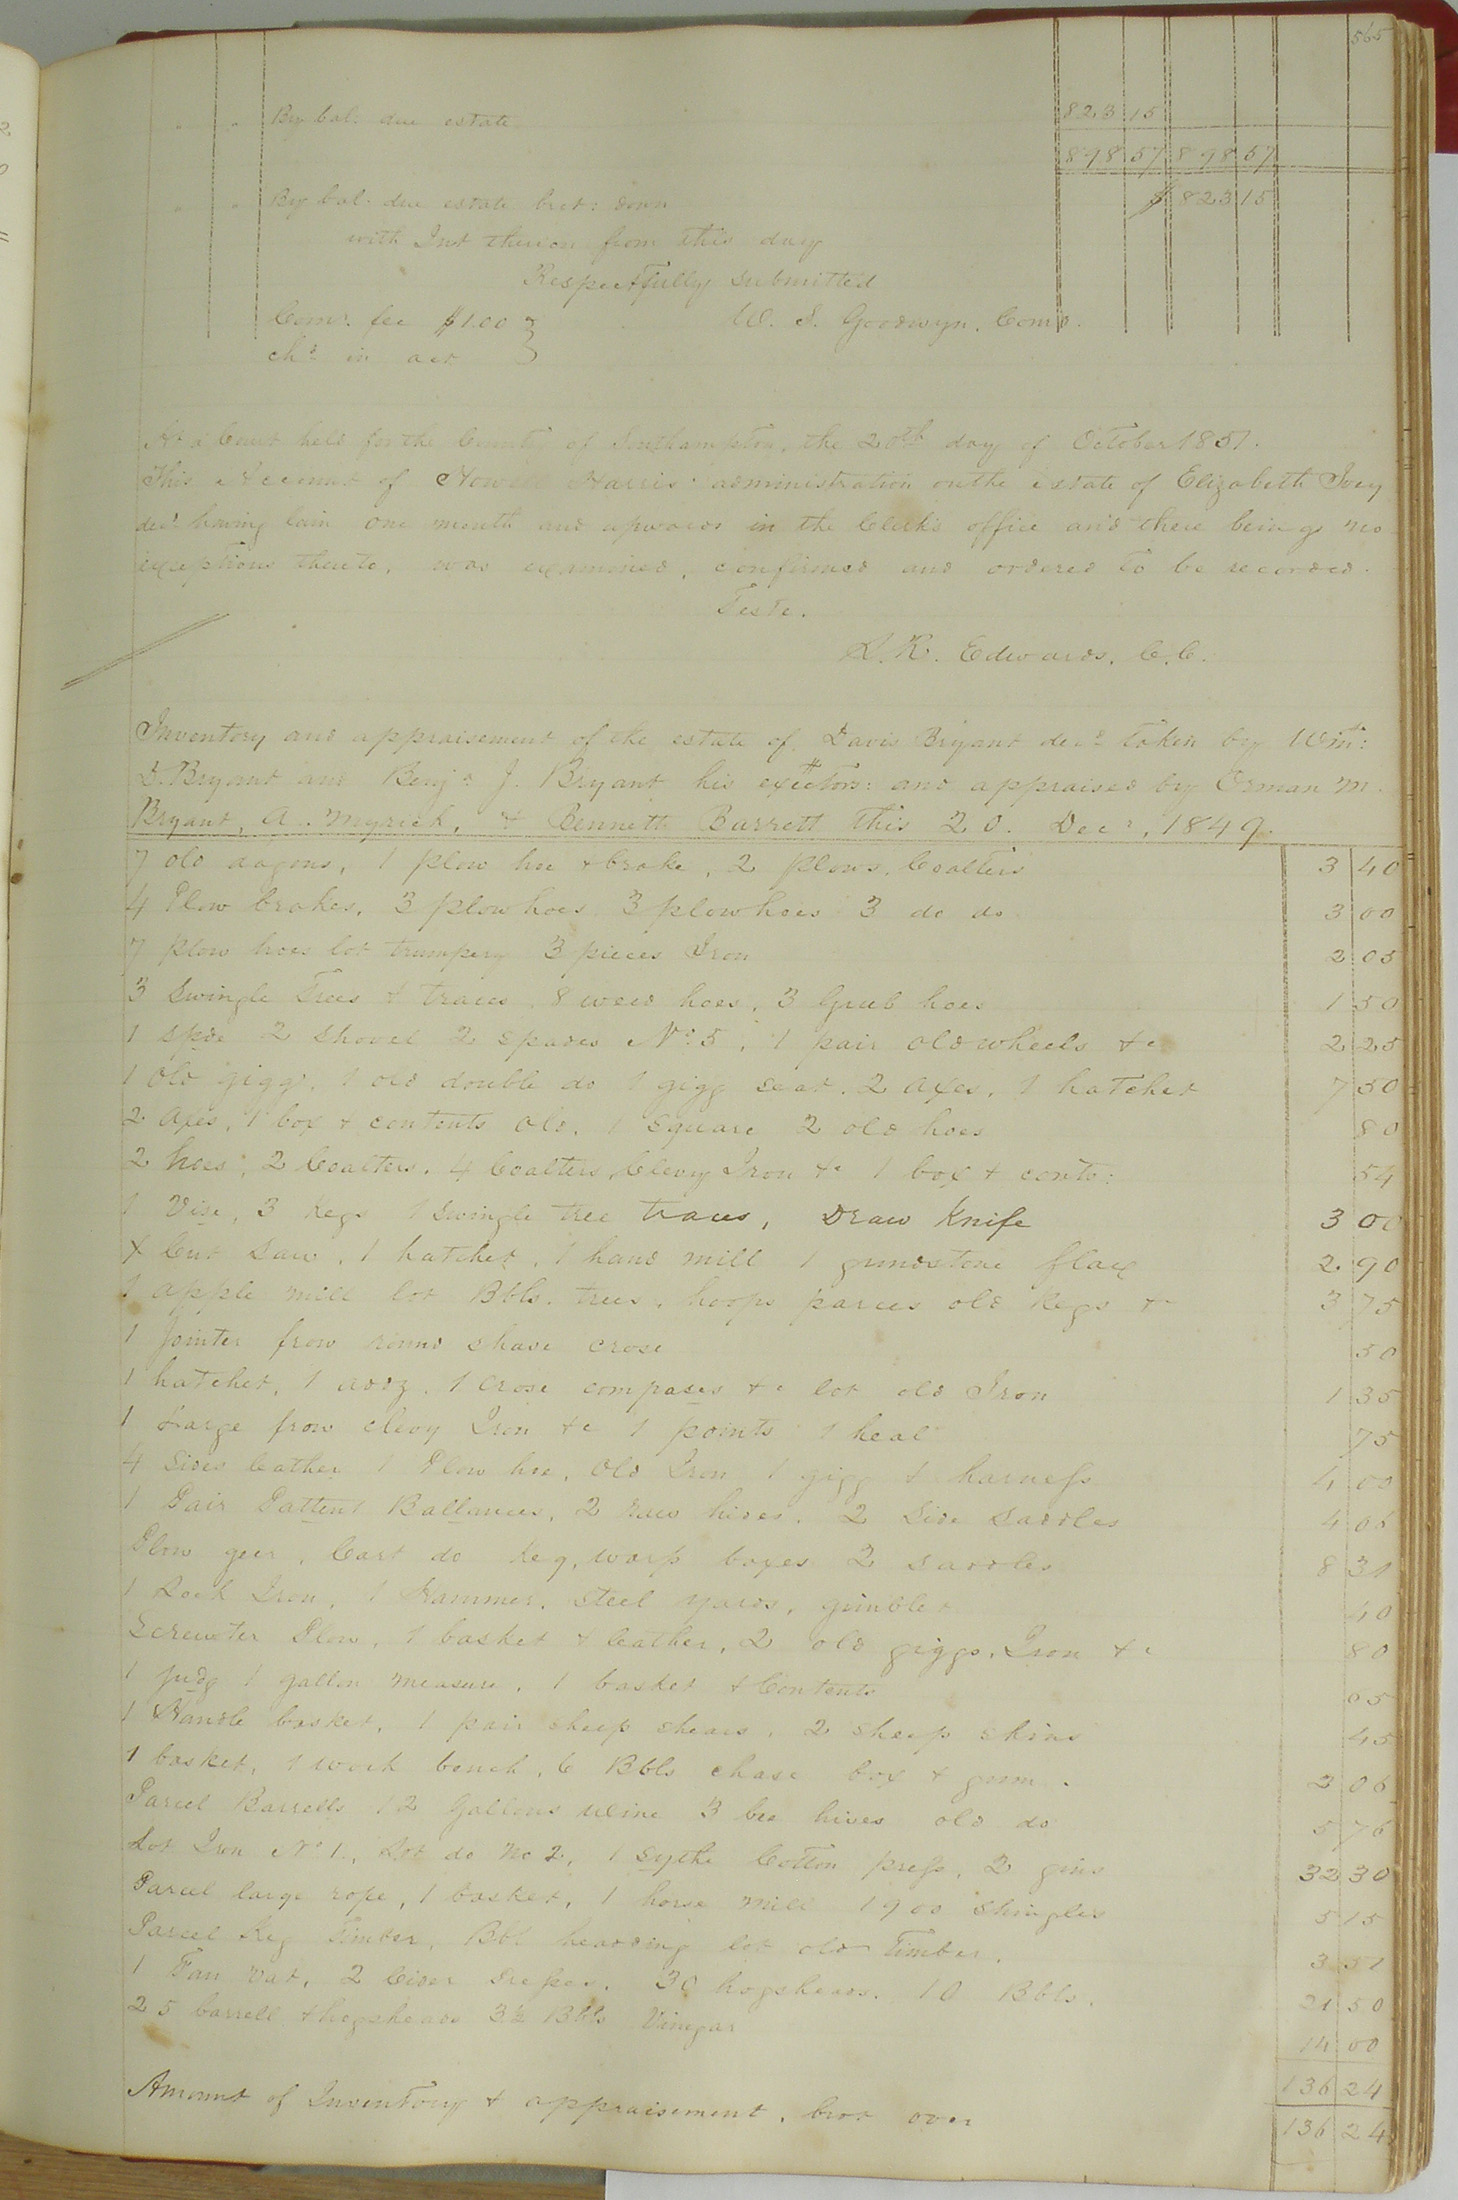 565
" " By bal: due estate 823 15
898 57 898 57
" " By bal: due estate brot: down $ 823 15
with Int thereon from this day
Respectfully submitted
Comr. fee $1.00 } W. S. Goodwyn. Comr.
chd. in act
At a Court held for the County of Southampton, the 20th day of October 1851.
This Account of Howell Harris' administration on the estate of Elizabeth Ivey
decd. having lain one month and upwards in the Clerk's office and there being no
exceptions thereto, was examined, confirmed and ordered to be recorded.
Teste.
L. R. Edwards. C.C.
Inventory and appraisement of the estate of Davis Bryant decd. taken by Wm:
D. Bryant and Benja. J. Bryant his exectors: and appraised by Orman M.
Bryant, A. Myrick, & Bennett Barrett this 20. Decr, 1849.
7 old augons, 1 plow hoe & brake, 2 plows, Coalters 3 40
4 Plow brakes, 3 plow hoes 3 plow hoes 3 do do 3 00
7 plow hoes lot trumpery 3 pieces Iron 2 05
3 Swingle Trees & traces, 8 weed hoes, 3 Grub hoes 1 50
1 spde 2 shovel 2 spades No. 5, 1 pair old wheels &c 2 25
1 Old gigg, 1 old double do 1 gigg seat, 2 axes, 1 hatchet 7 50
2 axes, 1 box & contents old, 1 square 2 old hoes 80
2 hoes, 2 Coalters. 4 Coalters, Clevy Iron &c 1 box & conts: 54
1 Vise, 3 Kegs 1 Swingle tree traces, Draw Knife 3 00
X Cut saw, 1 hatchet, 1 hand mill 1 grindstone flax 2 90
1 apple mill lot Bbls. trees, hoops parces old Kegs & 3 75
1 jointer frow round shave crose 50
1 hatchet, 1 addz, 1 crose compases &c lot old Iron 1 35
1 Large frow clevy Iron &c 1 points 1 heal 75
4 Sides leather 1 Plow hoe, Old Iron 1 gigg & harness 4 00
1 Pair Pattent Ballances, 2 raw hides, 2 Side Saddles 4 06
Plow geer, Cart do Keg, warp boxes 2 saddles 8 31
1 Lock Iron, 1 Hammer, Steel yards, gimblet 40
Plow, 1 basket & leather, 2 old giggs, Iron &c 80
1 judg 1 gallon measure, 1 basket & Contents 05
1 Handle basket, 1 pair sheep shears, 2 sheep skins 45
1 basket, 1 work bench, 6 Bbls chase box & gum 2 06
Parcel Barrells 12 Gallons wine 3 bee hives old do 5 76
Lot Iron No. 1, Lot do No 2, 1 sythe Cotton press, 2 gins 32 30
Parcel large rope, 1 basket, 1 horse mill 1900 shingles 5 15
Parcel Keg Timber, Bbl headding lot old Timber. 3 51
1 Tan vat, 2 Cider presses, 30 hogsheads, 10 Bbls. 21 50
25 barrell & hogsheads 3½ Bbls Vinegar 14 00
136 24
Amount of Inventory & appraisement, brot over 136 24